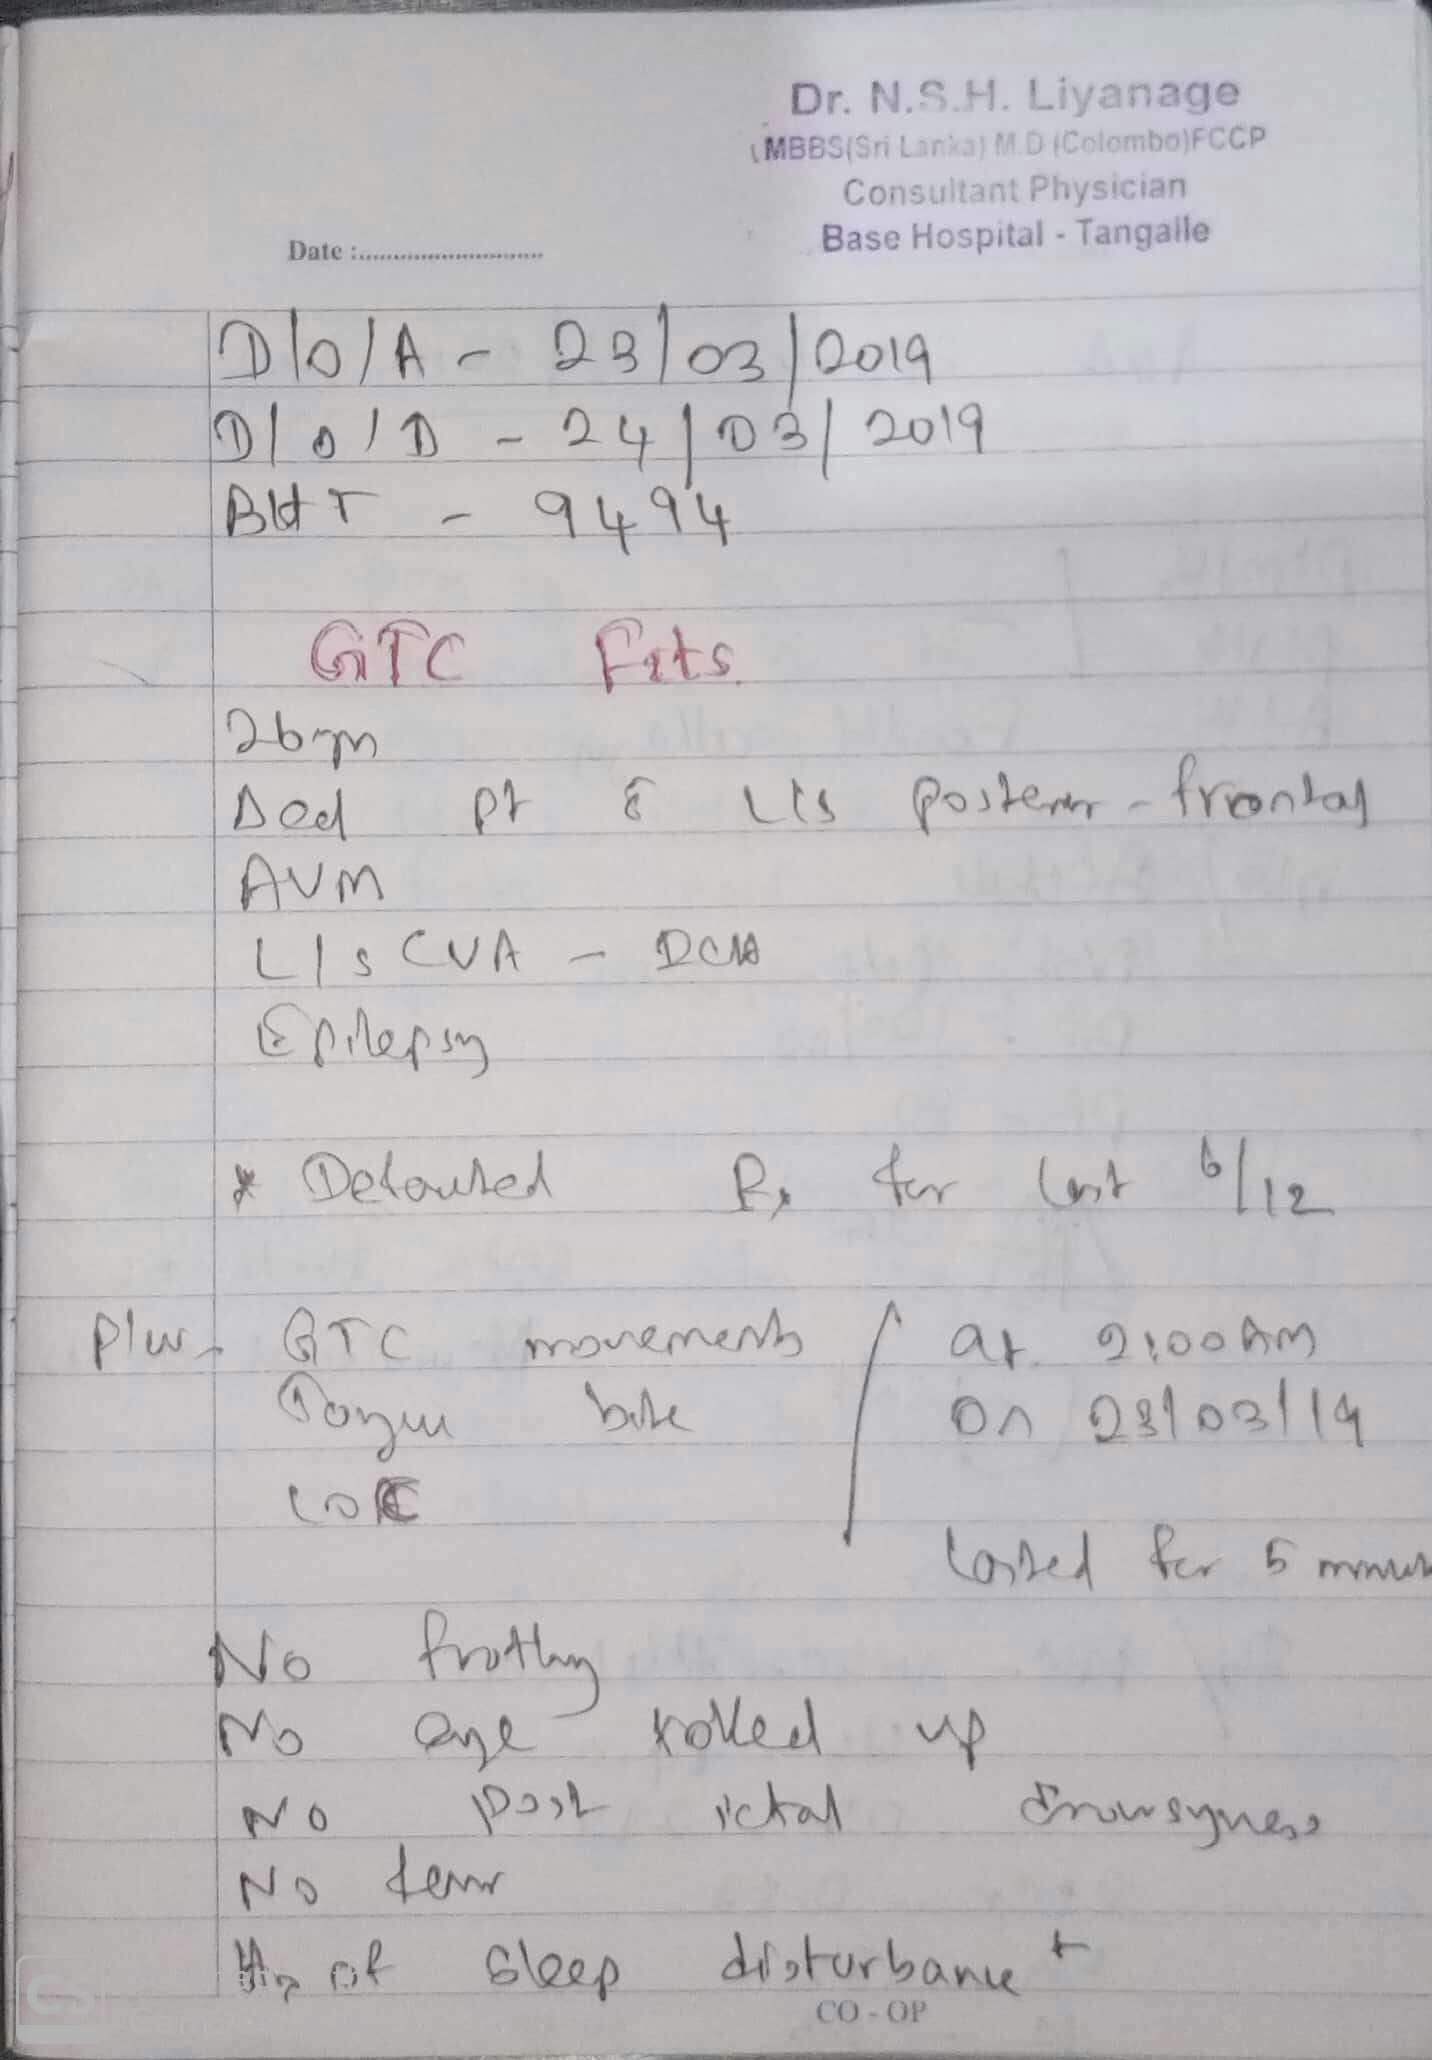 Dr. N.S.H. Liyanage
MBBS(Sri Lanka) M.D (Colombo)FCCP
Consultant Physician
Base Hospital - Tangalle
Date :..............................
D/o/A - 23/03/2019
D/o/D - 24/03/2019
BHT - 9494
GTC Fits.
26yr
Δed pt c̄ L/s posterior - frontal
AVM
L/s CVA -
Epilepsy
* Defaulted Rx for last 6/12
P/w - GTC movements / at 2:00 AM
Tongue bite on 23/03/19
LOC
lasted for 5 minut
No frothy
No eye rolled up
No post ictal drowsyness
No fever
Hx of sleep disturbance +
CO - OP
CS